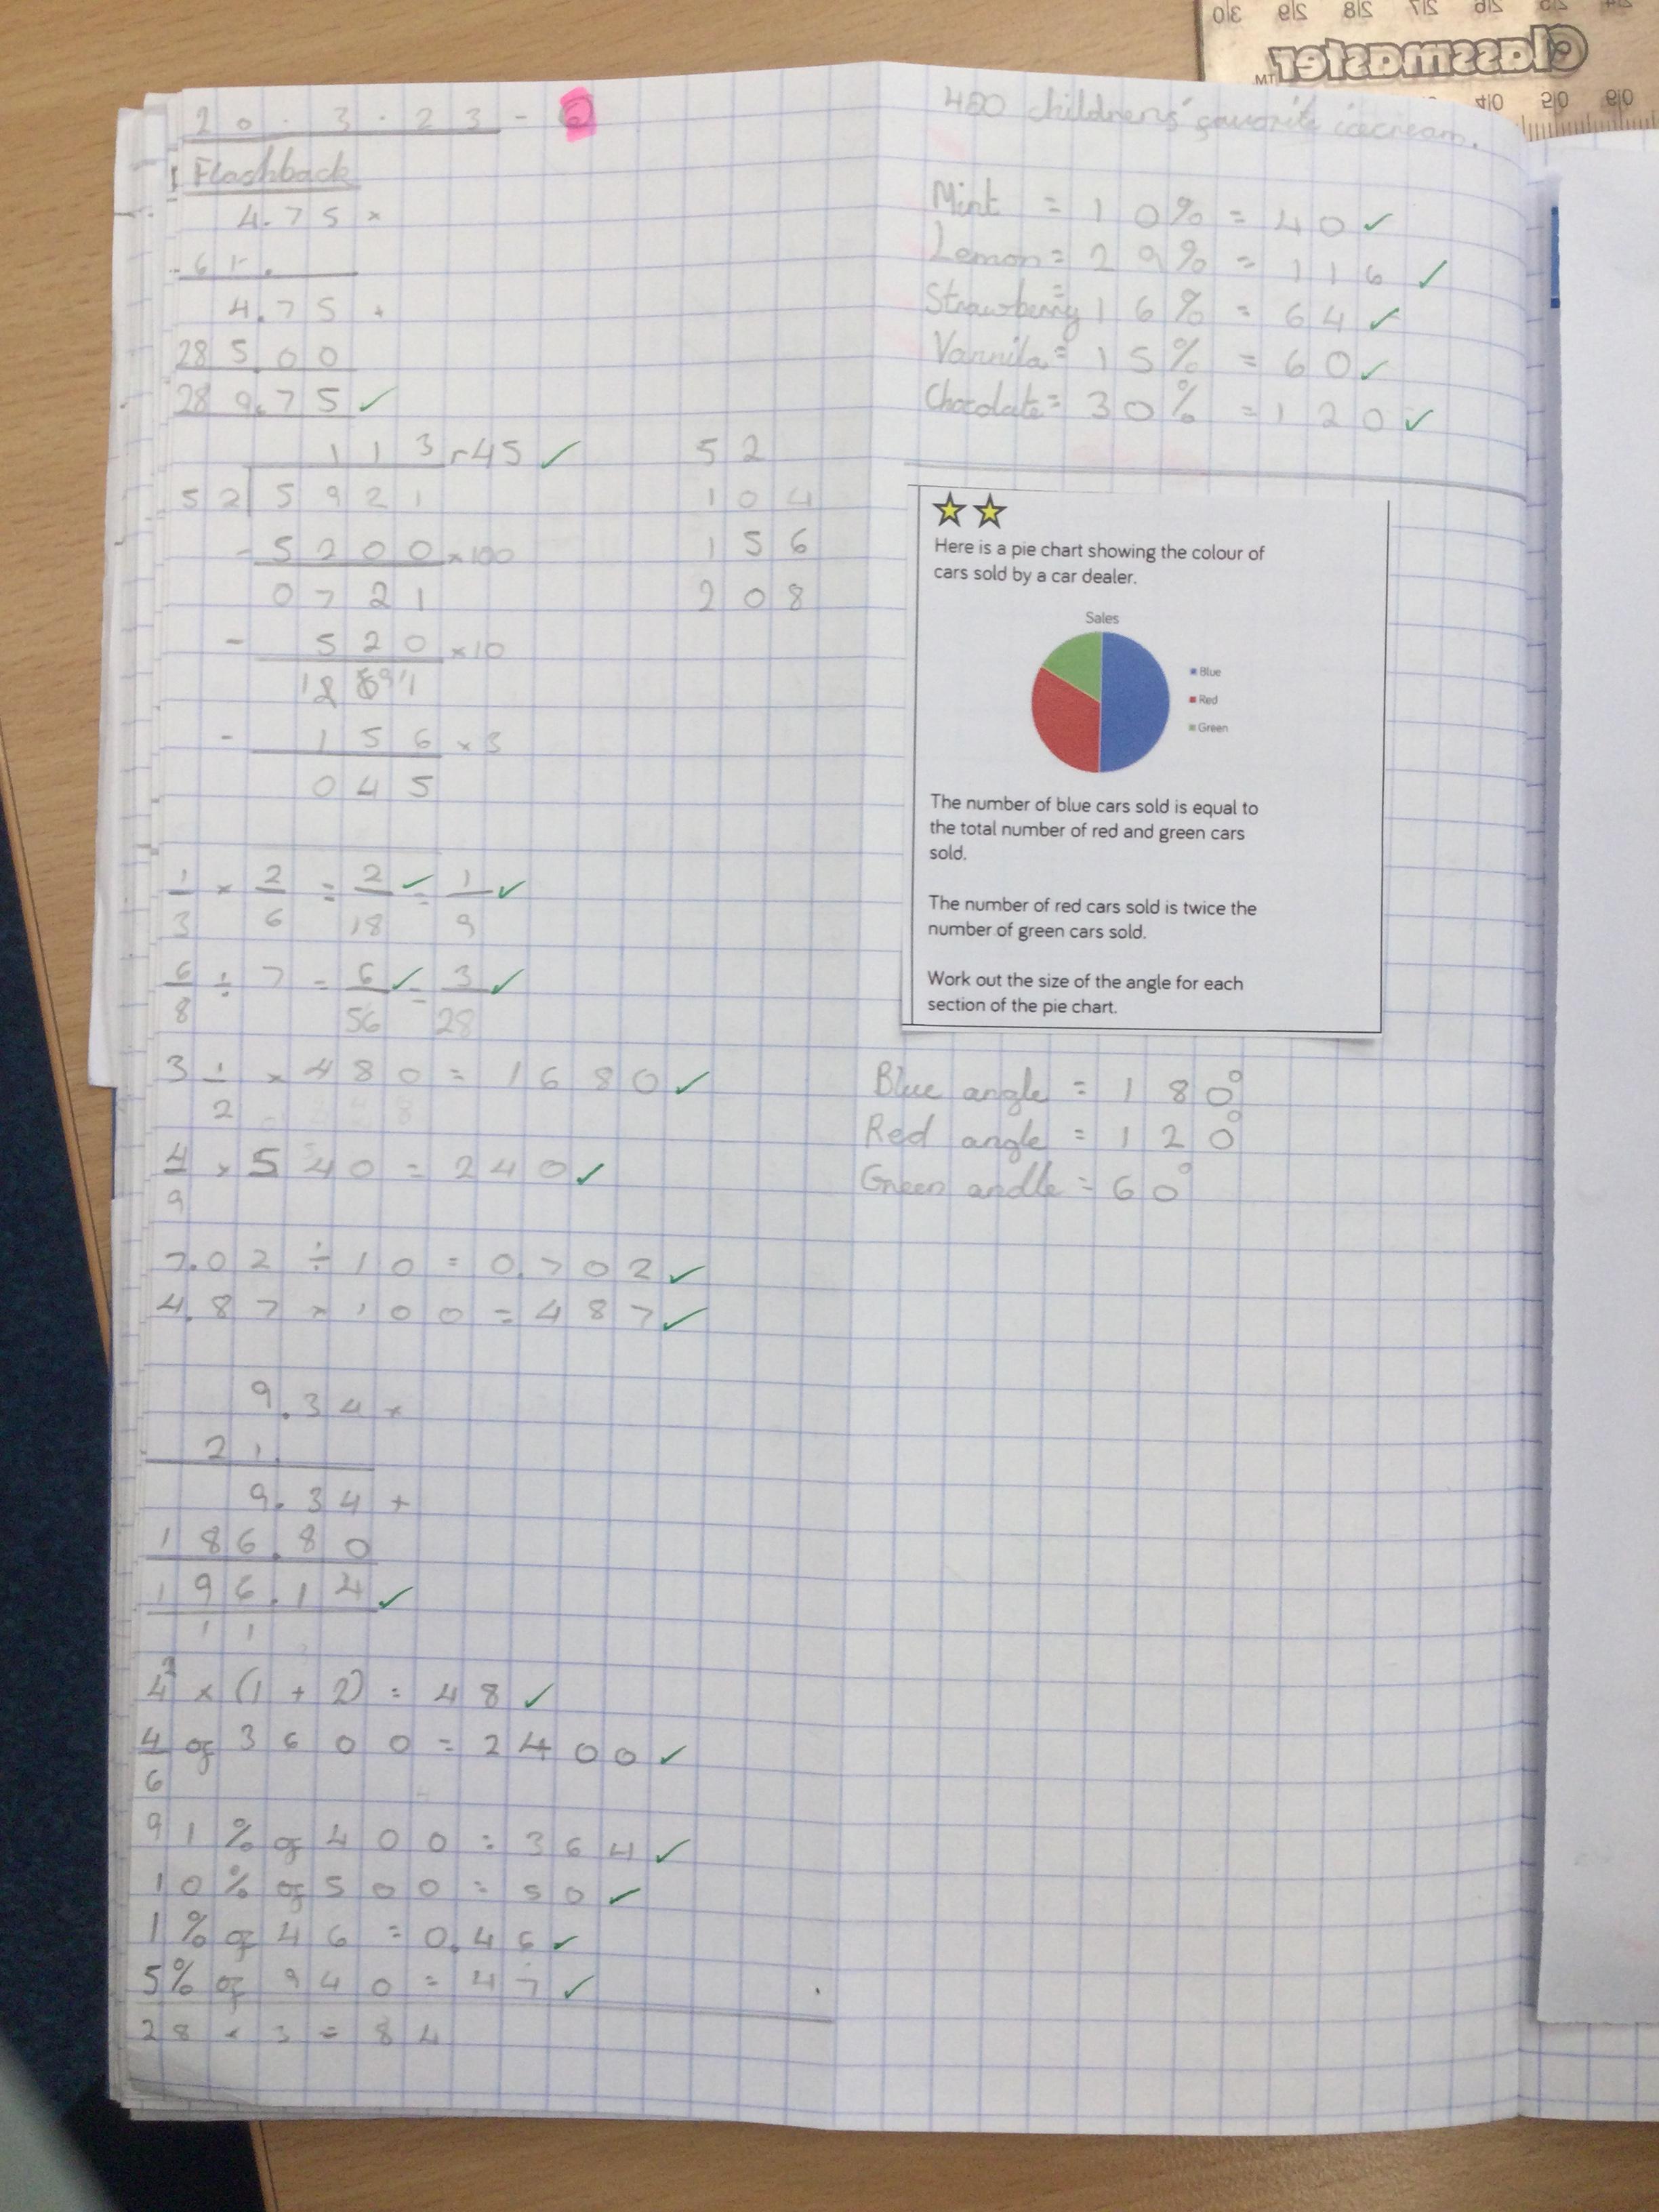 20.3.23 - 6
Flashback
4.75 ×
61.
4.75 +
285.00
289.75 ✓
113 r45 ✓
52 5921
- 5200 ×100
0721
- 520 ×10
- 156 ×3
045
52
104
156
208
1/3 × 2/6 = 2/18 ✓ = 1/9 ✓
6/8 ÷ 7 = 6/56 ✓ = 3/28 ✓
3 1/2 × 480 = 1680 ✓
4/9 × 540 = 240 ✓
7.02 ÷ 10 = 0.702 ✓
4.87 × 100 = 487 ✓
9.34 ×
21.
9.34 +
186.80
196.14 ✓
11
4² × (1 + 2) = 48 ✓
4/6 of 3600 = 2400 ✓
91% of 400 = 364 ✓
10% of 500 = 50 ✓
1% of 46 = 0.46 ✓
5% of 940 = 47 ✓
28 × 3 = 84
400 childrens' favorite icecream.
Mint = 10% = 40 ✓
Lemon = 29% = 116 ✓
Strawberry = 16% = 64 ✓
Vannila = 15% = 60 ✓
Chocolate = 30% = 120 ✓
Here is a pie chart showing the colour of
cars sold by a car dealer.
Sales
Blue
Red
Green
The number of blue cars sold is equal to
the total number of red and green cars
sold.
The number of red cars sold is twice the
number of green cars sold.
Work out the size of the angle for each
section of the pie chart.
Blue angle = 180°
Red angle = 120°
Green andle = 60°
classmaster
TM
30 29 28 27 26
40 50 60